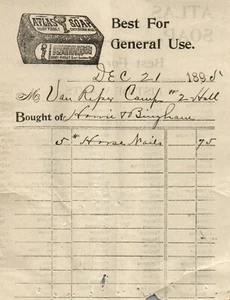 ATLAS SOAP
Best For
General Use.
DEC 21 1895
M Van Riper Camp # 2 Hall
Bought of Howie & Bingham
5 # Horse Nails 75